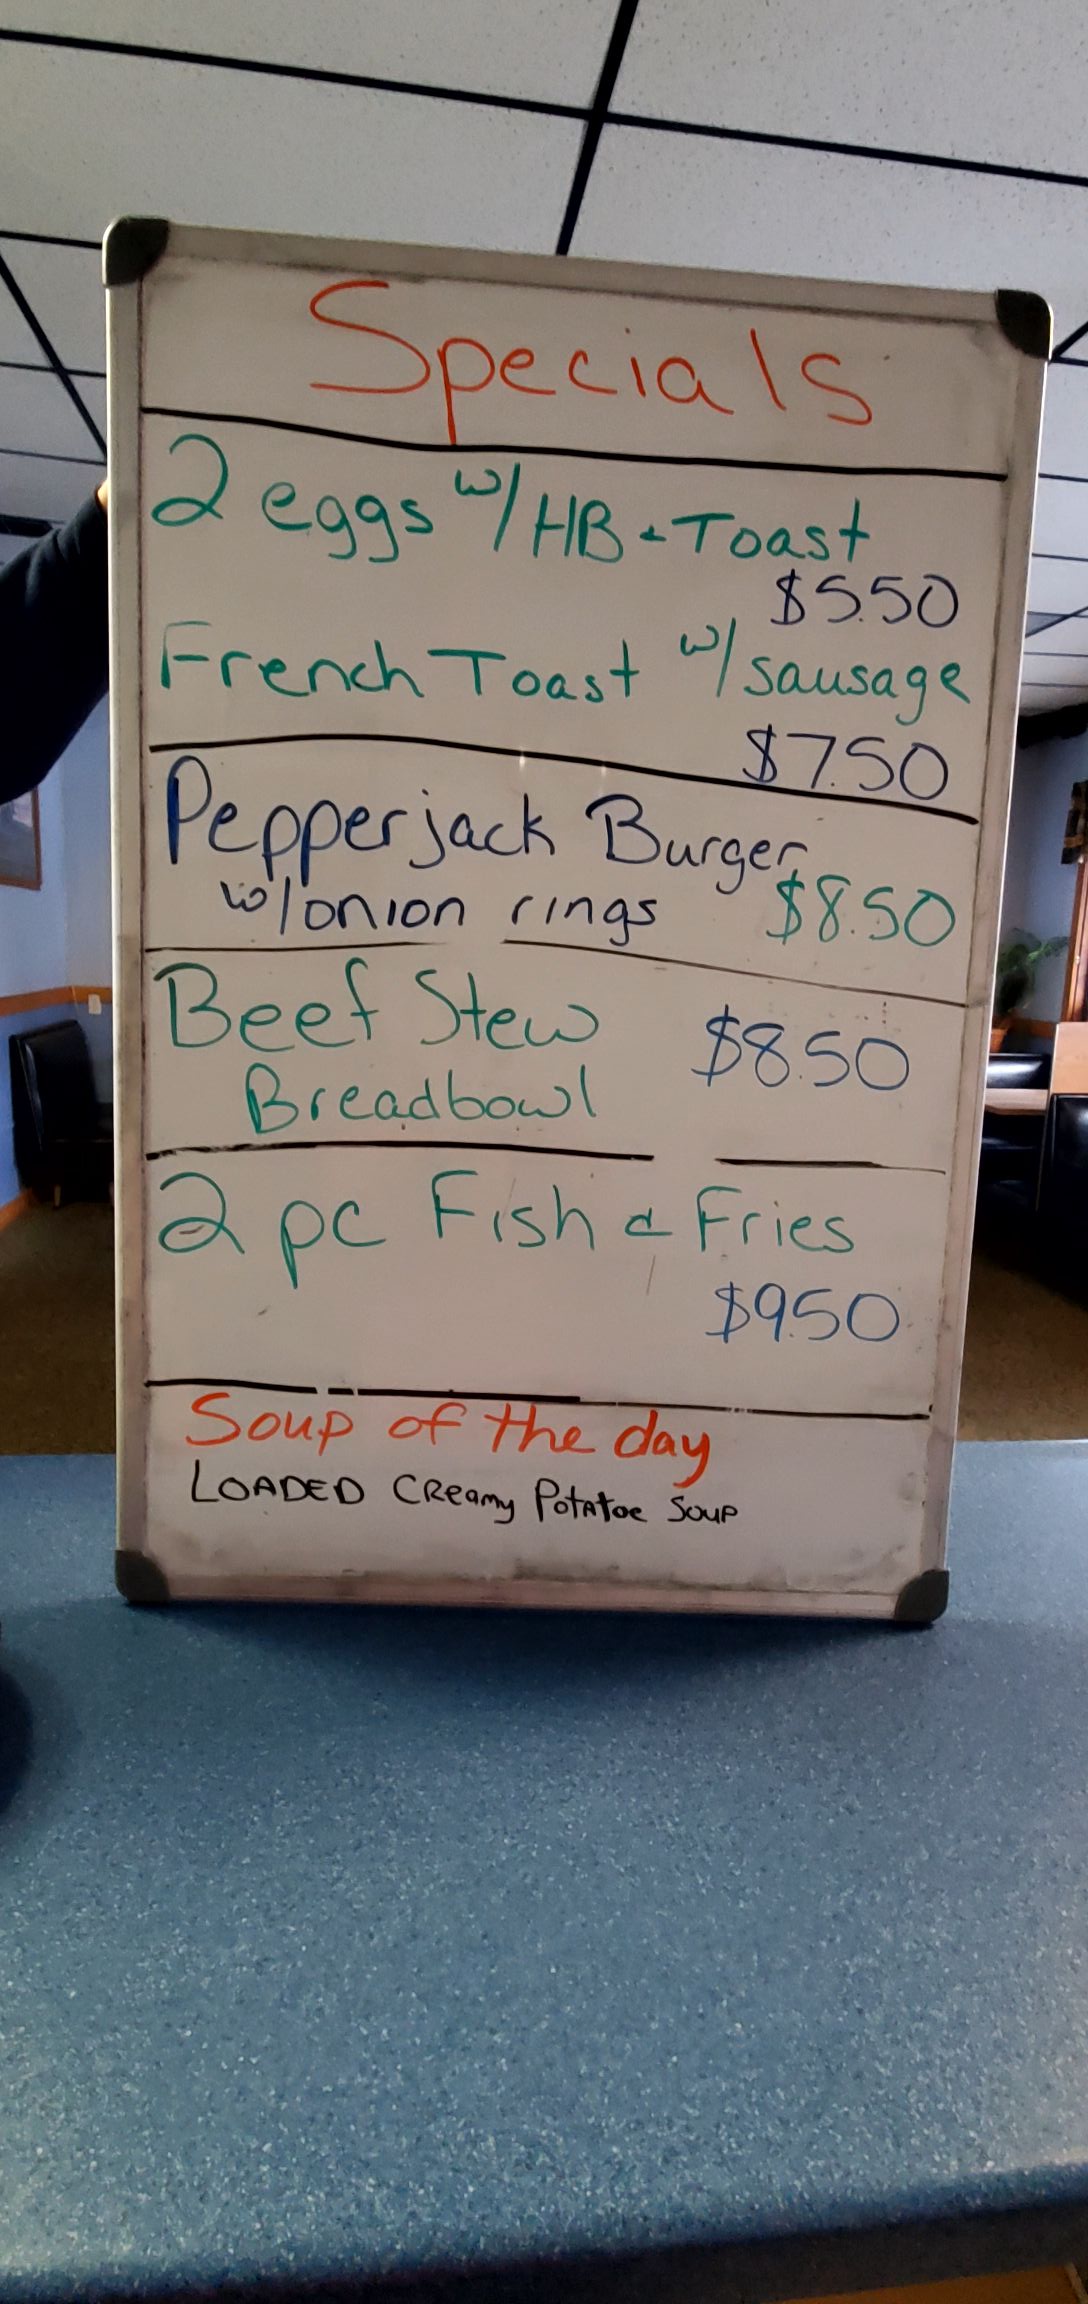 Specials
2 eggs w/ HB & Toast
$5.50
French Toast w/ sausage
$7.50
Pepperjack Burger
w/ onion rings $8.50
Beef Stew $8.50
Breadbowl
2 pc Fish & Fries
$9.50
Soup of the day
LOADED CReamy Potatoe Soup